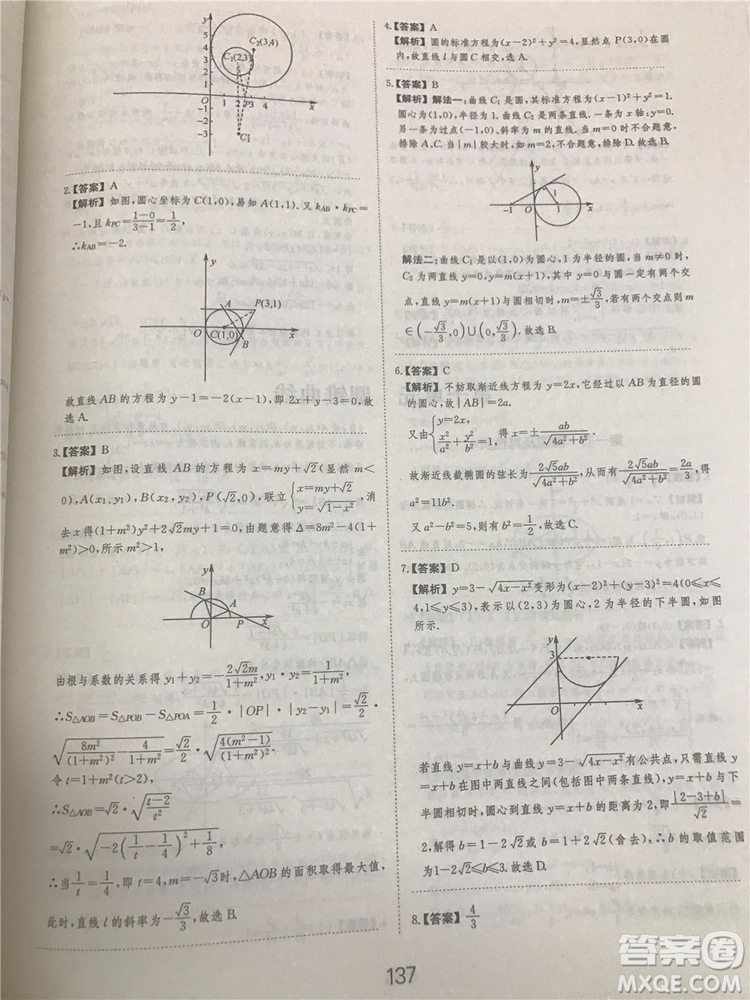 y
C₂(3,4)
C₁(2,3)
4
3
2
1
0 1 2 P3 4 x
-1
-2
-3
C₁′
2.【答案】A
【解析】如图,圆心坐标为 C(1,0),易知 A(1,1). 又 k_AB · k_PC =
-1,且 k_PC = (1-0)/(3-1) = 1/2,
∴k_AB=-2.
y
A P(3,1)
O C(1,0) B x
故直线 AB 的方程为 y-1=-2(x-1),即 2x+y-3=0,故
选 A.
3.【答案】B
【解析】如图,设直线 AB 的方程为 x=my+√2(显然 m<
0),A(x₁,y₁),B(x₂,y₂),P(√2,0),联立{x=my+√2, y=√(1-x²),消
去 x 得(1+m²)y²+2√2my+1=0,由题意得 Δ=8m²-4(1+
m²)>0,所示 m²>1,
y
B A
O P x
由根与系数的关系得 y₁+y₂=-2√2m/(1+m²),y₁·y₂=1/(1+m²),
∴S△AOB=S△POB-S△POA=1/2·|OP|·|y₂-y₁|=√2/2·
√(8m²/(1+m²)²-4/(1+m²))=√2/2·√(4(m²-1)/(1+m²)²).
令 t=1+m²(t>2),
∴S△AOB=√2·√((t-2)/t²)
=√2·√(-2(1/t-1/4)²+1/8),
∴当 1/t=1/4,即 t=4,m=-√3时,△AOB 的面积取得最大值,
此时,直线 l 的斜率为-√3/3,故选 B.
4.【答案】A
【解析】圆的标准方程为(x-2)²+y²=4,显然点 P(3,0)在圆
内,故直线 l 与圆 C 相交,选 A.
5.【答案】B
【解析】解法一:曲线 C₁ 是圆,其标准方程为(x-1)²+y²=1.
圆心为(1,0),半径为 1. 曲线 C₂ 是两条直线.一条为 x 轴,
另一条为过点(-1,0),斜率为 m 的直线.当 m=0 时不合题意,
排除 A,C. 当|m|较大时,如图,而不合题意,排除 D.故选 B.
y
1
-1 O x
解法二:曲线 C₁ 是以(1,0)为圆心,1 为半径的圆,当 m≠0 时,
C₂ 为两直线 y=0,y=m(x+1),其中 y=0 与圆一定有两个交
点,直线 y=m(x+1)与圆相切时,m=±√3/3,若有两个交点则 m
∈(-√3/3,0)∪(0,√3/3).故选 B.
6.【答案】C
【解析】不妨取渐近线方程为 y=2x,该直线应为以 AB 为直径的圆
的圆心,故|AB|=2a.
又由{y=2x, x²/a²+y²/b²=1,得 x=±ab/√(4a²+b²).
故渐近线截椭圆的弦长为2√5ab/√(4a²+b²),从而有2√5ab/√(4a²+b²)=2a/3,
得 a²=11b².
又 a²-b²=5,则有 b²=1/2,故选 C.
7.【答案】D
【解析】y=3-√(4x-x²)变形为(x-2)²+(y-3)²=4(0≤x≤
4,1≤y≤3),表示以(2,3)为圆心,2 为半径的下半圆,如图
所示.
y
3
O x
若直线 y=x+b 与曲线 y=3-√(4x-x²)有公共点,只需直线
y=x+b 在图中两直线之间(包括图中两条直线),y=x+b 与下
半圆相切时,圆心到直线 y=x+b 的距离为 2,即|2-3+b|/√2=
2,解得 b=1-2√2或 b=1+2√2(舍去),∴b 的取值范围为
1-2√2≤b≤3.故选 D.
8.【答案】4/3
137
答案圈
MXQE.COM